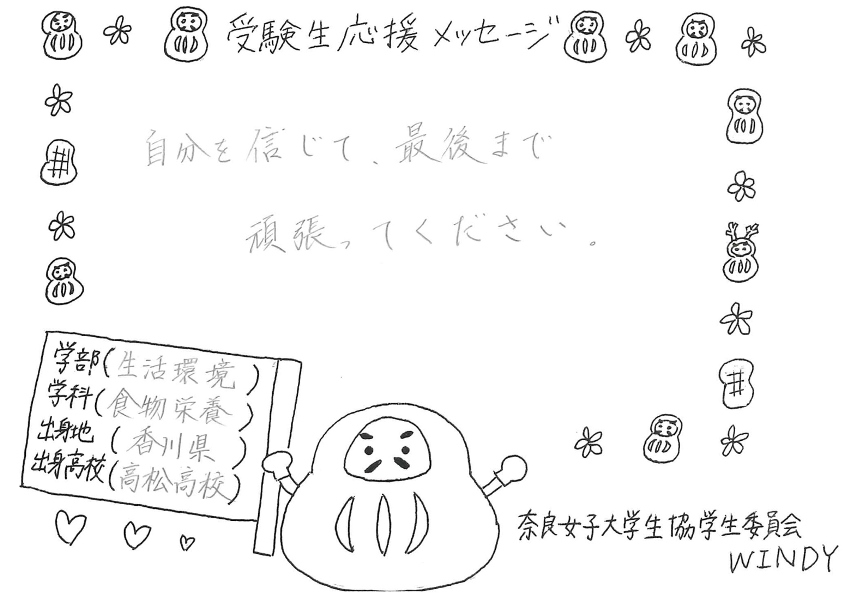 受験生応援メッセージ
自分を信じて、最後まで
頑張ってください。
学部(生活環境)
学科(食物栄養)
出身地(香川県)
出身高校(高松高校)
奈良女子大学生協学生委員会
WINDY